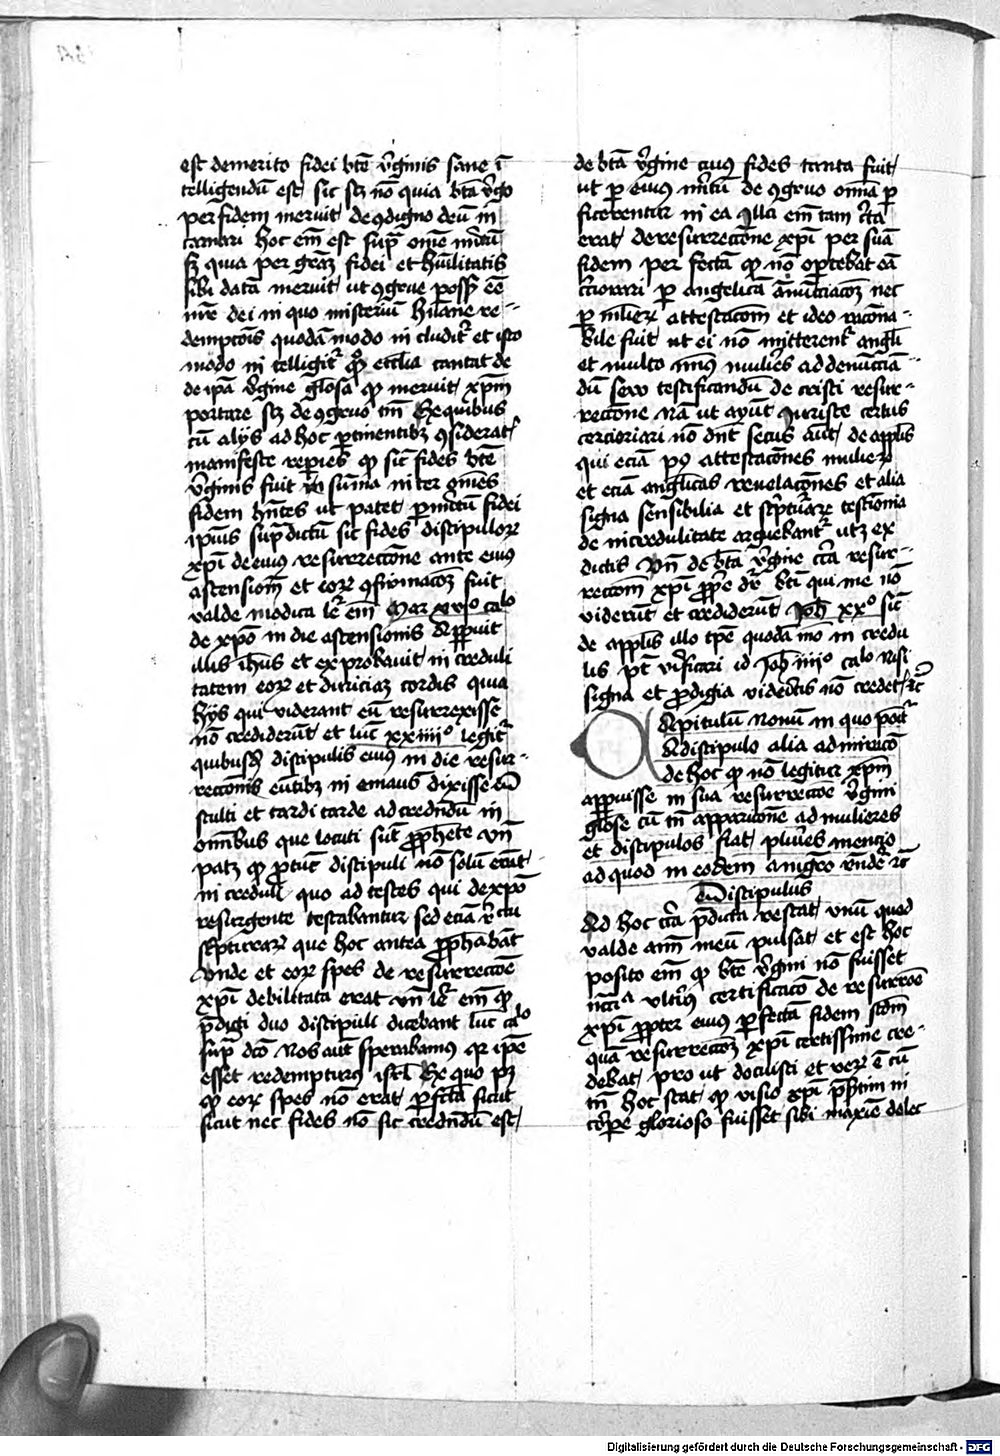 est demerito fidei btē v̾ginis sane ī
telligendū est sic sꝫ nō quia bta v̾go
per fidem meruit de ꝯdigno deū in
carnari hoc em̄ est sup̄ om̄e m̄itū
sꝫ quia per grāꝫ fidei et hūilitatis
sibi datā meruit ut ꝯgrue poss̄ eē
mr̄e dei in quo misteriū hūane re
demptōis quodā modo in cludit᷑ et isto
modo in telligit᷑ ꝙ eccl̄ia cantat de
de ip̄a v̾gine glosa ꝙ meruit xp̄m
portare sꝫ de ꝯgruo tn̄ Ex quibus
cū alijs ad hoc ꝑtinentibꝫ ꝯsiderat᷑
manifeste repies ꝙ sic fides btē
v̾ginis fuit sum̄a in ter om̄es
fidem hn̄tes ut patet ꝑ m̄itū fidei
ipius sup̄ dictū sic fides discipuloꝝ
xp̄i de eius resurrectōne ante eius
ascensionē et eoꝝ ꝯfirmacōꝫ fuit
valde modica lr̄ em̄ Mar xvio calo
de xp̄o in die ascensionis Apparuit
illis ih̄us et exprobauit in creduli
tatem eoꝝ et duriciaꝫ cordis quia
hijs qui viderant eū resurrexisse
nō crediderūt et luc̄ xxiiiio legit᷑
quibusdā discipulis eius in die resur
rectōnis eūtibꝫ in emaus dixisse
stulti et tardi tarde ad credendū in
om̄ibus que locuti sūt ꝓphete vn̄
patꝫ ꝙ ꝓ tūc discipuli nō solū erāt
in creduli quo ad testes qui de xp̄o
resurgente testabantur sed eciā
scripturaꝝ que hoc antea ꝓphābāt
vnde et eoꝝ spes de resurrectōe
xp̄i debilitata erat vn̄ lr̄ em̄ ꝙ
p̄digi duo discipuli dicebant luc̄ calo
sup̄ dc̄o Nos aūt sperabamus qꝛ ip̄e
esset redempturus isrl̄ Ex quo pꝫ
ꝙ eoꝝ spes nō erat ꝑfcta sicut
sicut nec fides nō sic credendū est
de btā v̾gine cuius fides tanta fuit
ut ꝑ eius m̄itū de ꝯgruo om̄ia ꝑ
ficerentur in ea Illa em̄ tam c̄ta
erat de resurrectōne xp̄i per suā
fidem per fectā ꝙ nō oportebat eā
c̄ciorari ꝑ angelicā ānūciacōꝫ nec
ꝑ mulieꝝ attestacōem et ideo racōna
bile fuit ut ei nō mitterent᷑ angli
et multo min̄us mulieres ad denūciā
dū seu testificandū de cristi resur
rectōne Nā ut ayūt Juriste certus
cerciorari nō dn̄t secus aūt de applis
qui eciā po attestacōnes mulieꝝ
et eciā angl̄icas reuelacōnes et alia
signa sensibilia et scripturaꝝ testiōnia
de incredulitate arguebant᷑ utꝫ ex
dictis Vn̄ de btā v̾gine c̄ca resur
rectōem xp̄i ꝓprie dr̄ bti qui me nō
viderūt et crediderūt Joh̄ xxo sic
de applis illo tp̄e quodā mō in credu
lis pt̄ v̾ificari id Joh iiiio calo Nisi
signa et ꝓdigia videritis nō credet᷑ ꝛc
Capitulū nonū in quo ponit᷑
A discipulo alia admiracō
de hoc ꝙ nō legitur xp̄m
apparuisse in sua resurrectōe v̾gini
glōse cū tn̄ apparicione ad mulieres
et discipulos fiat plures mencio
ad quod in eodem a mgr̄o rn̄de ꝛc
Discipulus
Ad hoc c̄ca p̄dicta restat vnū quod
valde aīm meū pulsat et est hoc
posito em̄ ꝙ btē v̾gini nō fuisset
nc̄c̄a vlti̾us certificacō de resurrōe
xp̄i ꝓpter eius ꝑfectā fidem scd̄m
quā resurrectōꝫ xp̄i certissime cre
debat pro ut docuisti et veꝝ ē cū
tn̄ hoc stat ꝙ visio xp̄i p̄sertim in
corpore glorioso fuisset sibi maxīe delec
Digitalisierung gefördert durch die Deutsche Forschungsgemeinschaft - DFG